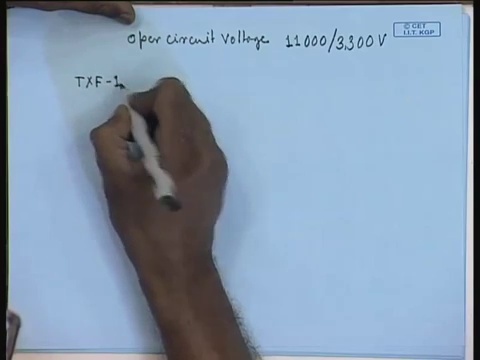 Open circuit Voltage 11000/3,300 V
© CET
I.I.T. KGP
TXF-1